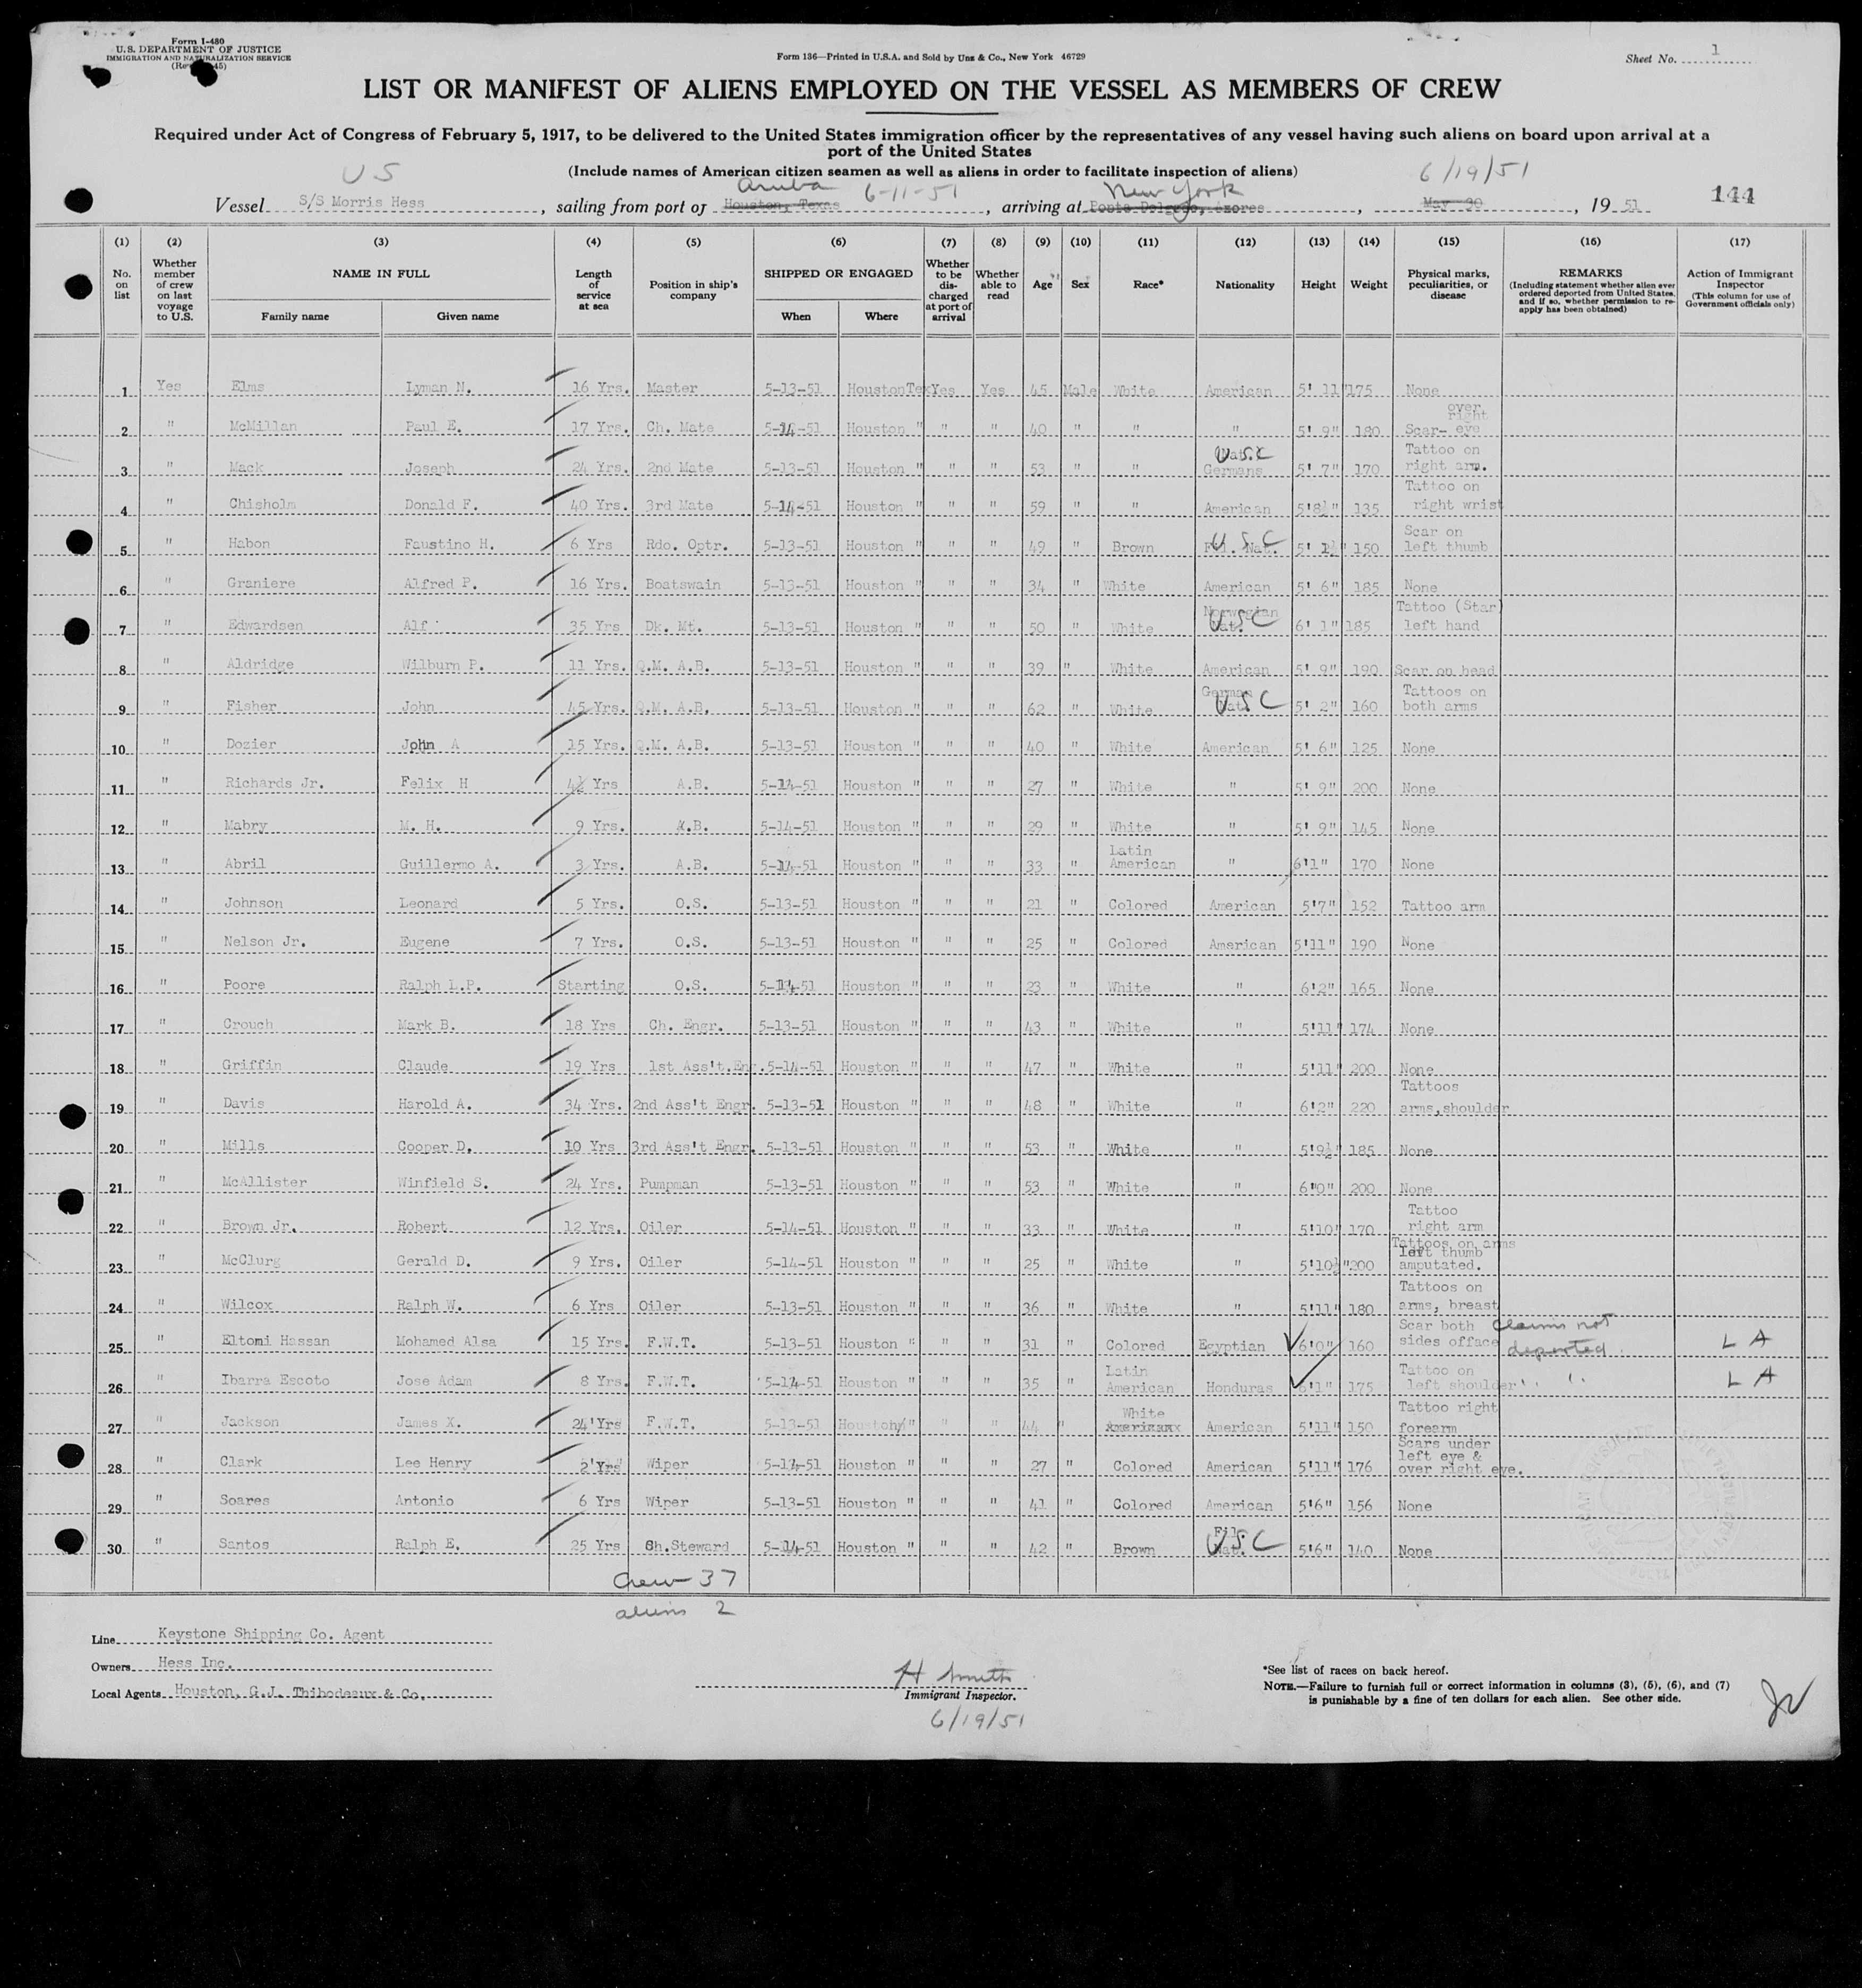 Form I-480
U.S. DEPARTMENT OF JUSTICE
IMMIGRATION AND NATURALIZATION SERVICE
Form 136—Printed in U.S.A. and Sold by Unz & Co., New York 46729
Sheet No. 1
LIST OR MANIFEST OF ALIENS EMPLOYED ON THE VESSEL AS MEMBERS OF CREW
Required under Act of Congress of February 5, 1917, to be delivered to the United States immigration officer by the representatives of any vessel having such aliens on board upon arrival at a
port of the United States
(Include names of American citizen seamen as well as aliens in order to facilitate inspection of aliens)
U S
Aruba 6-11-51 New York 6/19/51
Vessel S/S Morris Hess, sailing from port of Houston, Texas, arriving at Ponta Delgada, Azores, May 30, 1951 144
(1) (2) (3) (4) (5) (6) (7) (8) (9) (10) (11) (12) (13) (14) (15) (16) (17)
No. on list
Whether member of crew on last voyage to U.S.
NAME IN FULL
Family name
Given name
Length of service at sea
Position in ship's company
SHIPPED OR ENGAGED
When
Where
Whether to be discharged at port of arrival
Whether able to read
Age
Sex
Race*
Nationality
Height
Weight
Physical marks, peculiarities, or disease
REMARKS
(Including statement whether alien ever ordered deported from United States, and if so, whether permission to reapply has been obtained)
Action of Immigrant Inspector
(This column for use of Government officials only)
1 Yes Elms Lyman N. 16 Yrs. Master 5-13-51 Houston Tex Yes Yes 45 Male White American 5' 11" 175 None
2 " McMillan Paul E. 17 Yrs. Ch. Mate 5-14-51 Houston " " " 40 " " " 5' 9" 180 Scar- over right eye
3 " Mack Joseph 24 Yrs. 2nd Mate 5-13-51 Houston " " " 53 " " Germans USC 5' 7" 170 Tattoo on right arm.
4 " Chisholm Donald F. 40 Yrs. 3rd Mate 5-14-51 Houston " " " 59 " " American 5'8½" 135 Tattoo on right wrist
5 " Habon Faustino H. 6 Yrs Rdo. Optr. 5-13-51 Houston " " " 49 " Brown Fil. Nat. USC 5' 1½" 150 Scar on left thumb
6 " Graniere Alfred P. 16 Yrs. Boatswain 5-13-51 Houston " " " 34 " White American 5' 6" 185 None
7 " Edwardsen Alf 35 Yrs Dk. Mt. 5-13-51 Houston " " " 50 " White Norwegian Nat. USC 6' 1" 185 Tattoo (Star) left hand
8 " Aldridge Wilburn P. 11 Yrs. Q.M. A.B. 5-13-51 Houston " " " 39 " White American 5' 9" 190 Scar on head
9 " Fisher John 45 Yrs. Q.M. A.B. 5-13-51 Houston " " " 62 " White German Nat. USC 5' 2" 160 Tattoos on both arms
10 " Dozier John A 15 Yrs. Q.M. A.B. 5-13-51 Houston " " " 40 " White American 5' 6" 125 None
11 " Richards Jr. Felix H 4½ Yrs A.B. 5-14-51 Houston " " " 27 " White " 5' 9" 200 None
12 " Mabry M. H. 9 Yrs. A.B. 5-14-51 Houston " " " 29 " White " 5' 9" 145 None
13 " Abril Guillermo A. 3 Yrs. A.B. 5-14-51 Houston " " " 33 " Latin American " 6'1" 170 None
14 " Johnson Leonard 5 Yrs. O.S. 5-13-51 Houston " " " 21 " Colored American 5'7" 152 Tattoo arm
15 " Nelson Jr. Eugene 7 Yrs. O.S. 5-13-51 Houston " " " 25 " Colored American 5'11" 190 None
16 " Poore Ralph L.P. Starting O.S. 5-14-51 Houston " " " 23 " White " 6'2" 165 None
17 " Crouch Mark B. 18 Yrs Ch. Engr. 5-13-51 Houston " " " 43 " White " 5'11" 174 None
18 " Griffin Claude 19 Yrs 1st Ass't.Engr. 5-14-51 Houston " " " 47 " White " 5'11" 200 None
19 " Davis Harold A. 34 Yrs. 2nd Ass't Engr. 5-13-51 Houston " " " 48 " White " 6'2" 220 Tattoos arms,shoulder
20 " Mills Cooper D. 10 Yrs 3rd Ass't Engr. 5-13-51 Houston " " " 53 " White " 5'9½" 185 None
21 " McAllister Winfield S. 24 Yrs. Pumpman 5-13-51 Houston " " " 53 " White " 6'0" 200 None
22 " Brown Jr. Robert 12 Yrs. Oiler 5-14-51 Houston " " " 33 " White " 5'10" 170 Tattoo right arm
23 " McClurg Gerald D. 9 Yrs. Oiler 5-14-51 Houston " " " 25 " White " 5'10½" 200 Tattoos on arms left thumb amputated.
24 " Wilcox Ralph W. 6 Yrs Oiler 5-13-51 Houston " " " 36 " White " 5'11" 180 Tattoos on arms, breast
25 " Eltomi Hassan Mohamed Alsa 15 Yrs. F.W.T. 5-13-51 Houston " " " 31 " Colored Egyptian 6'0" 160 Scar both sides offace Claims not deported L A
26 " Ibarra Escoto Jose Adam 8 Yrs. F.W.T. 5-14-51 Houston " " " 35 " Latin American Honduras 6'1" 175 Tattoo on left shoulder " " L A
27 " Jackson James X. 24 Yrs F.W.T. 5-13-51 Houston " " " 44 " White American 5'11" 150 Tattoo right forearm
28 " Clark Lee Henry 2 Yrs Wiper 5-14-51 Houston " " " 27 " Colored American 5'11" 176 Scars under left eye & over right eye.
29 " Soares Antonio 6 Yrs Wiper 5-13-51 Houston " " " 41 " Colored American 5'6" 156 None
30 " Santos Ralph E. 25 Yrs Ch.Steward 5-14-51 Houston " " " 42 " Brown Fil. Nat. USC 5'6" 140 None
Crew 37
aliens 2
Line Keystone Shipping Co. Agent
Owners Hess Inc.
Local Agents Houston, G.J. Thibodeaux & Co.
H Smith
Immigrant Inspector.
6/19/51
*See list of races on back hereof.
NOTE.—Failure to furnish full or correct information in columns (3), (5), (6), and (7)
is punishable by a fine of ten dollars for each alien. See other side.